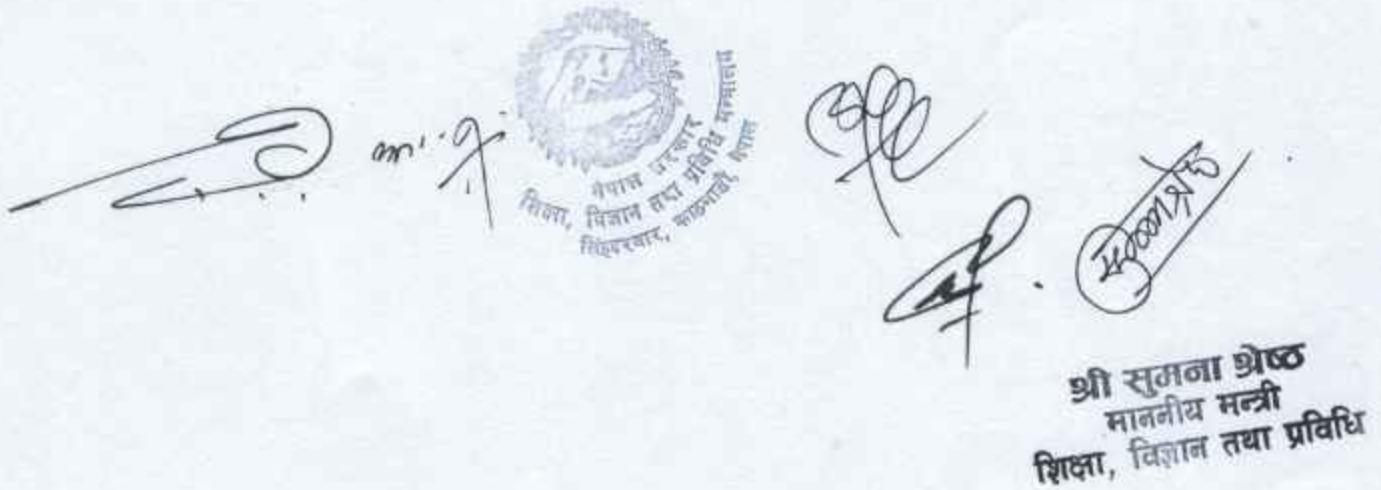 नेपाल सरकार
शिक्षा, विज्ञान तथा प्रविधि मन्त्रालय
सिंहदरबार, काठमाडौं, नेपाल
श्री सुमना श्रेष्ठ
माननीय मन्त्री
शिक्षा, विज्ञान तथा प्रविधि